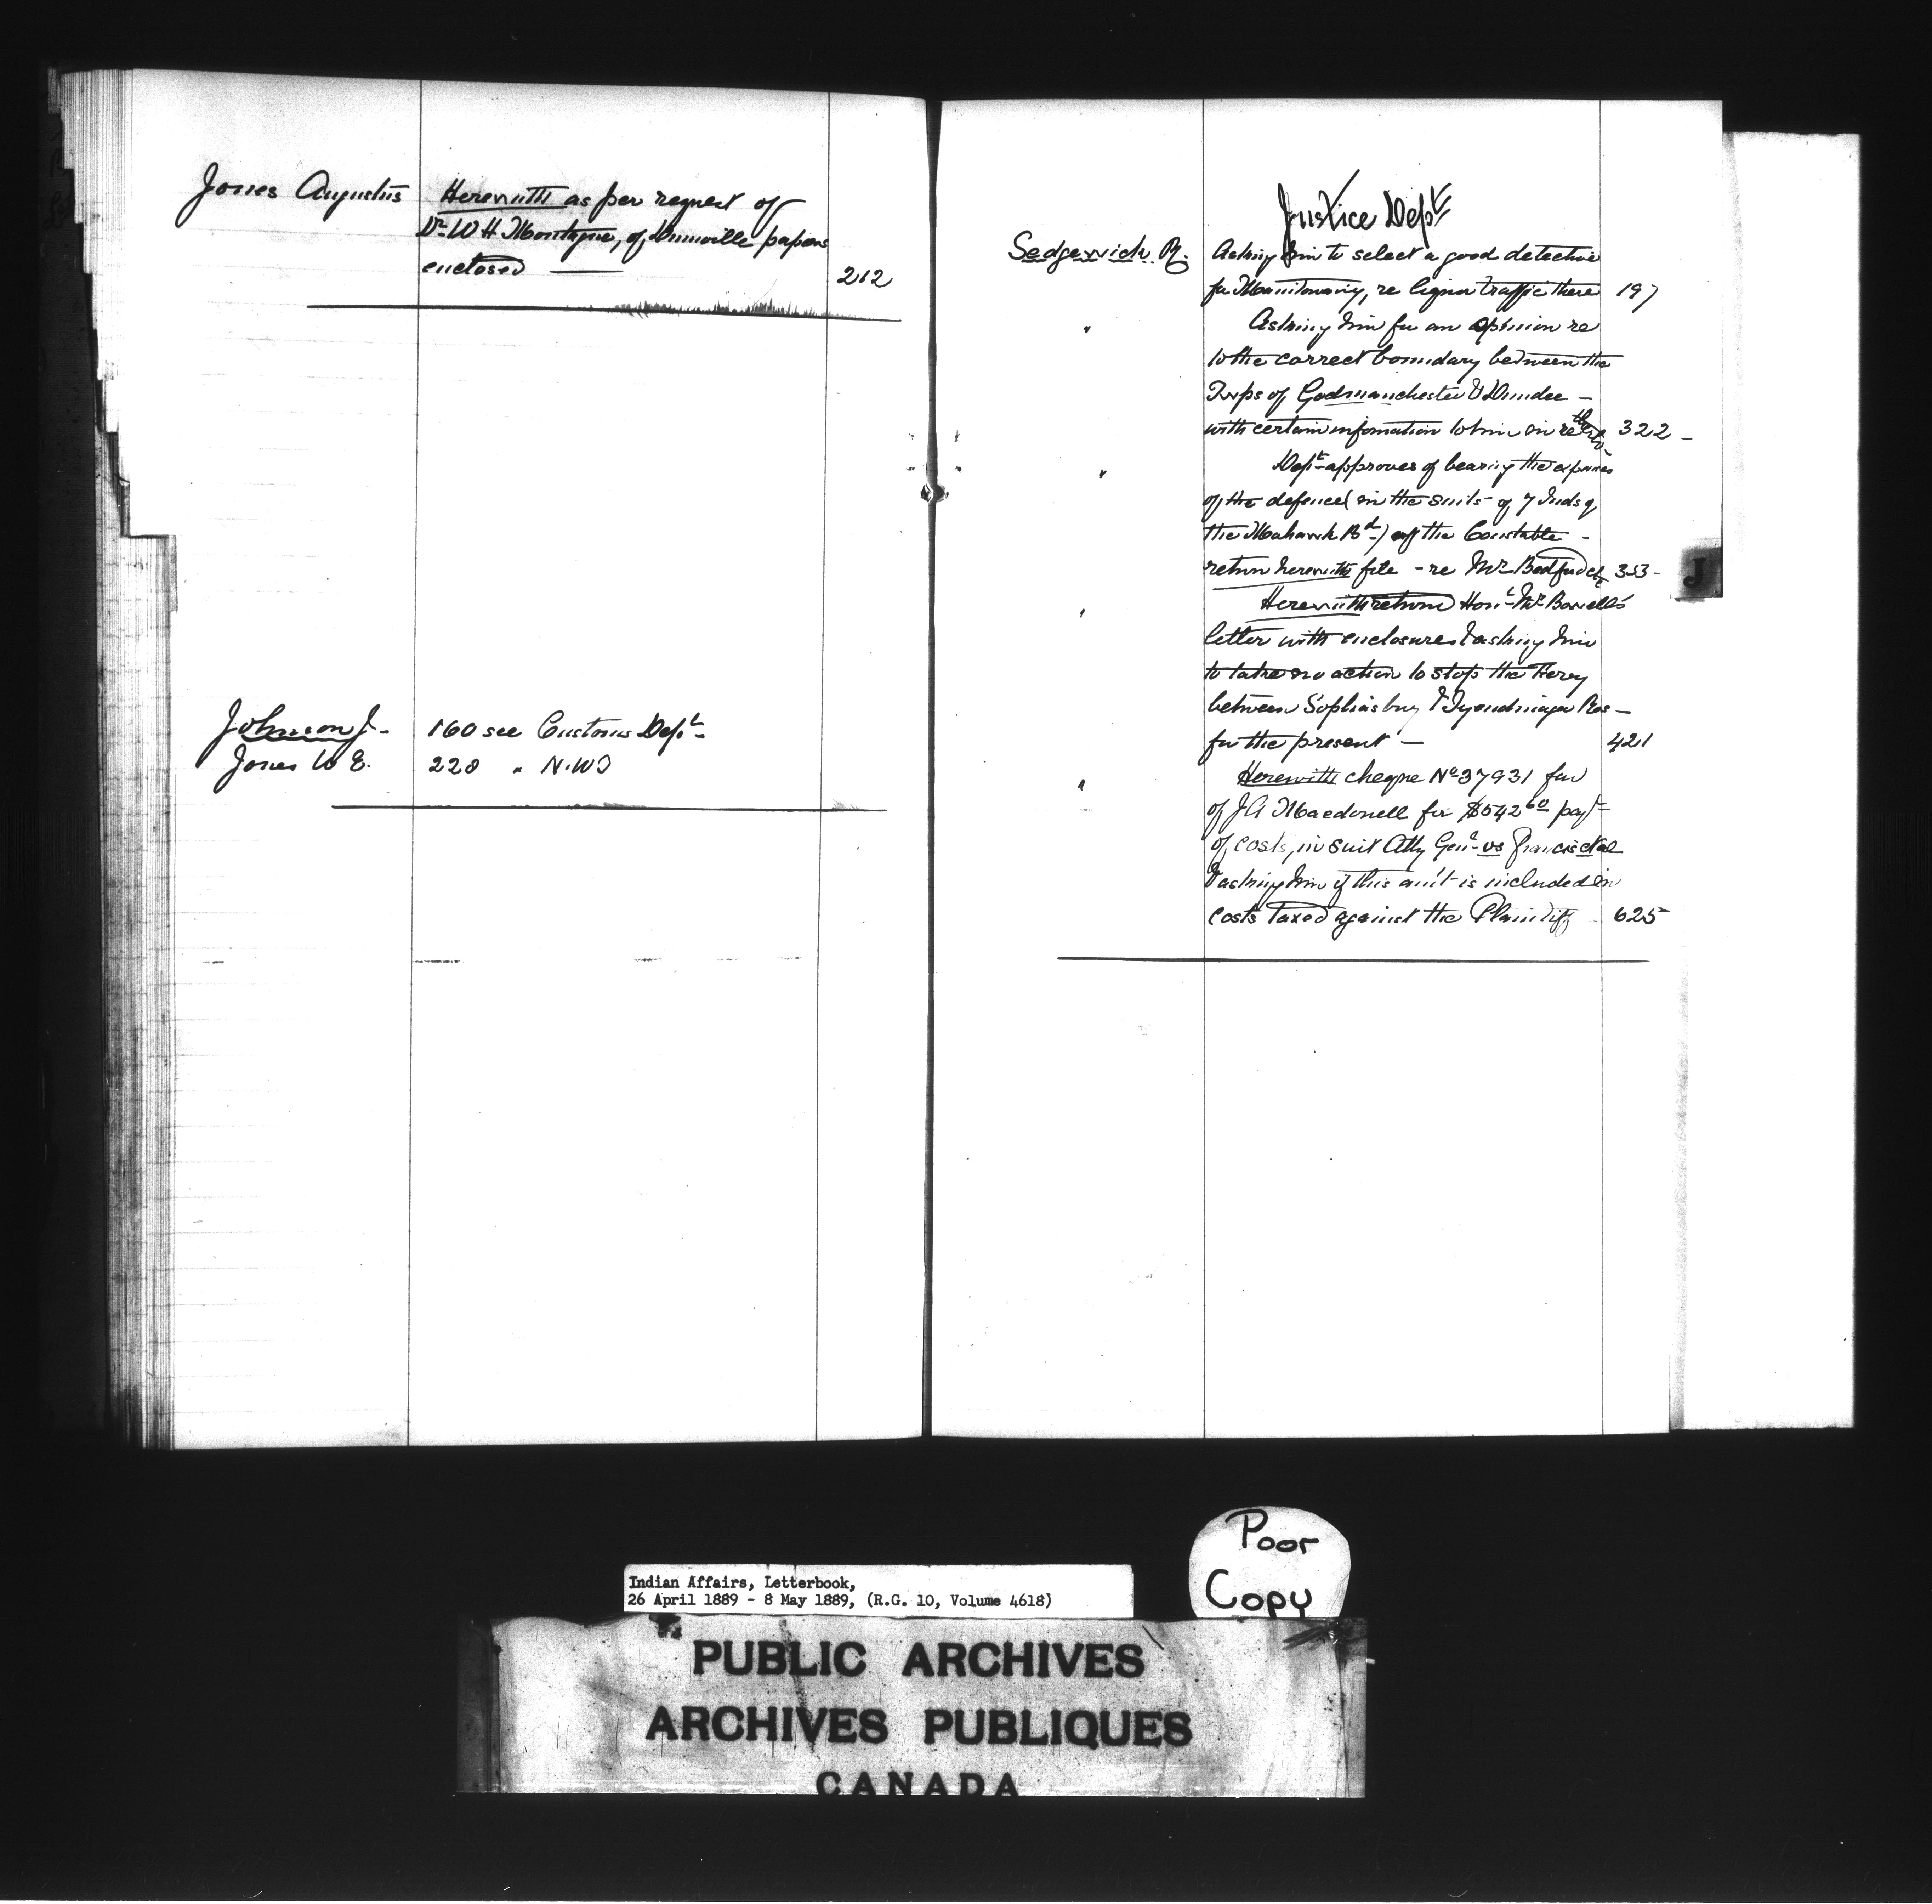 Jones Augustus Herewith as per request of
Dr W H Montague, of Dunnville papers
enclosed — 212
Johnson J. 160 see Customs Dept
Jones W E. 220 " N.W.T
Justice Dept
Sedgewick R. Asking him to select a good detective
for Manitowaning, re liquor traffic there 197
" Asking him for an opinion re
to the correct boundary between the
Twps of Godmanchester & Dundee —
with certain information to him in re 322 -
" Dept approves of bearing the expenses
of the defence (in the suits of 7 Inds of
the Mohawk Bd) the Constable -
return herewith file - re Mr Bedford 353 -
" Herewith return Honl Mr Bowell's
letter with enclosures & asking him
to take no action to stop the Ferry
between Sophiasburg & Tyendinaga Res —
for the present — 421
" Herewith cheque No 37931 fav
of J A Macdonell for $542 60 payt
of costs, in suit Atty Genl vs Francis et al
& asking him if this am't is included in
costs taxed against the Plaintiff 625
J
Poor
Copy
Indian Affairs, Letterbook,
26 April 1889 - 8 May 1889, (R.G. 10, Volume 4618)
PUBLIC ARCHIVES
ARCHIVES PUBLIQUES
CANADA